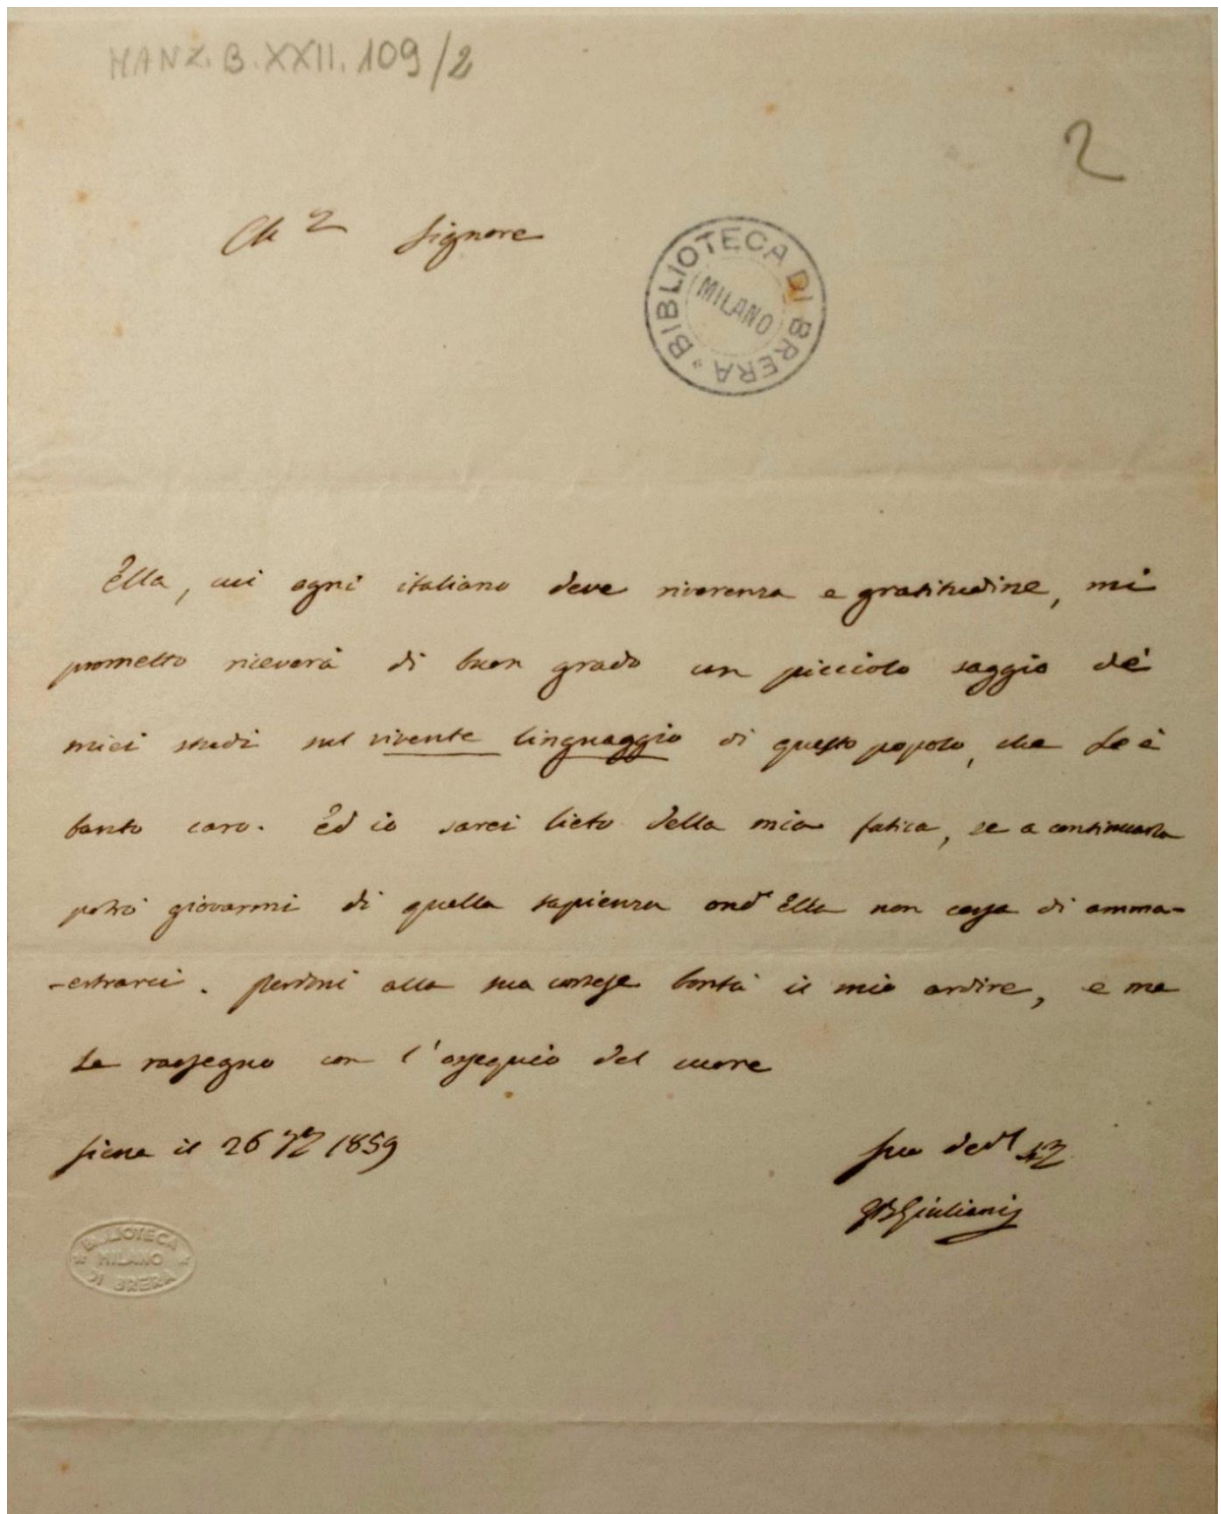 MANZ. B. XXII. 109/2
2
Ch.r Signore
BIBLIOTECA DI BRERA
MILANO
Ella, cui ogni italiano deve riverenza e gratitudine, mi
prometto riceverà di buon grado un picciolo saggio de'
miei studi sul vivente linguaggio di questo popolo, che Le è
tanto caro. Ed io sarei lieto della mia fatica, se a continuarla
potrò giovarmi di quella sapienza ond'Ella non cessa di amma-
-estrarci. Perdoni alla sua cortese bontà il mio ardire, e me
Le rassegno con l'ossequio del cuore
Siena il 26 7bre 1859
Suo
GBGiuliani
BIBLIOTECA
MILANO
DI BRERA